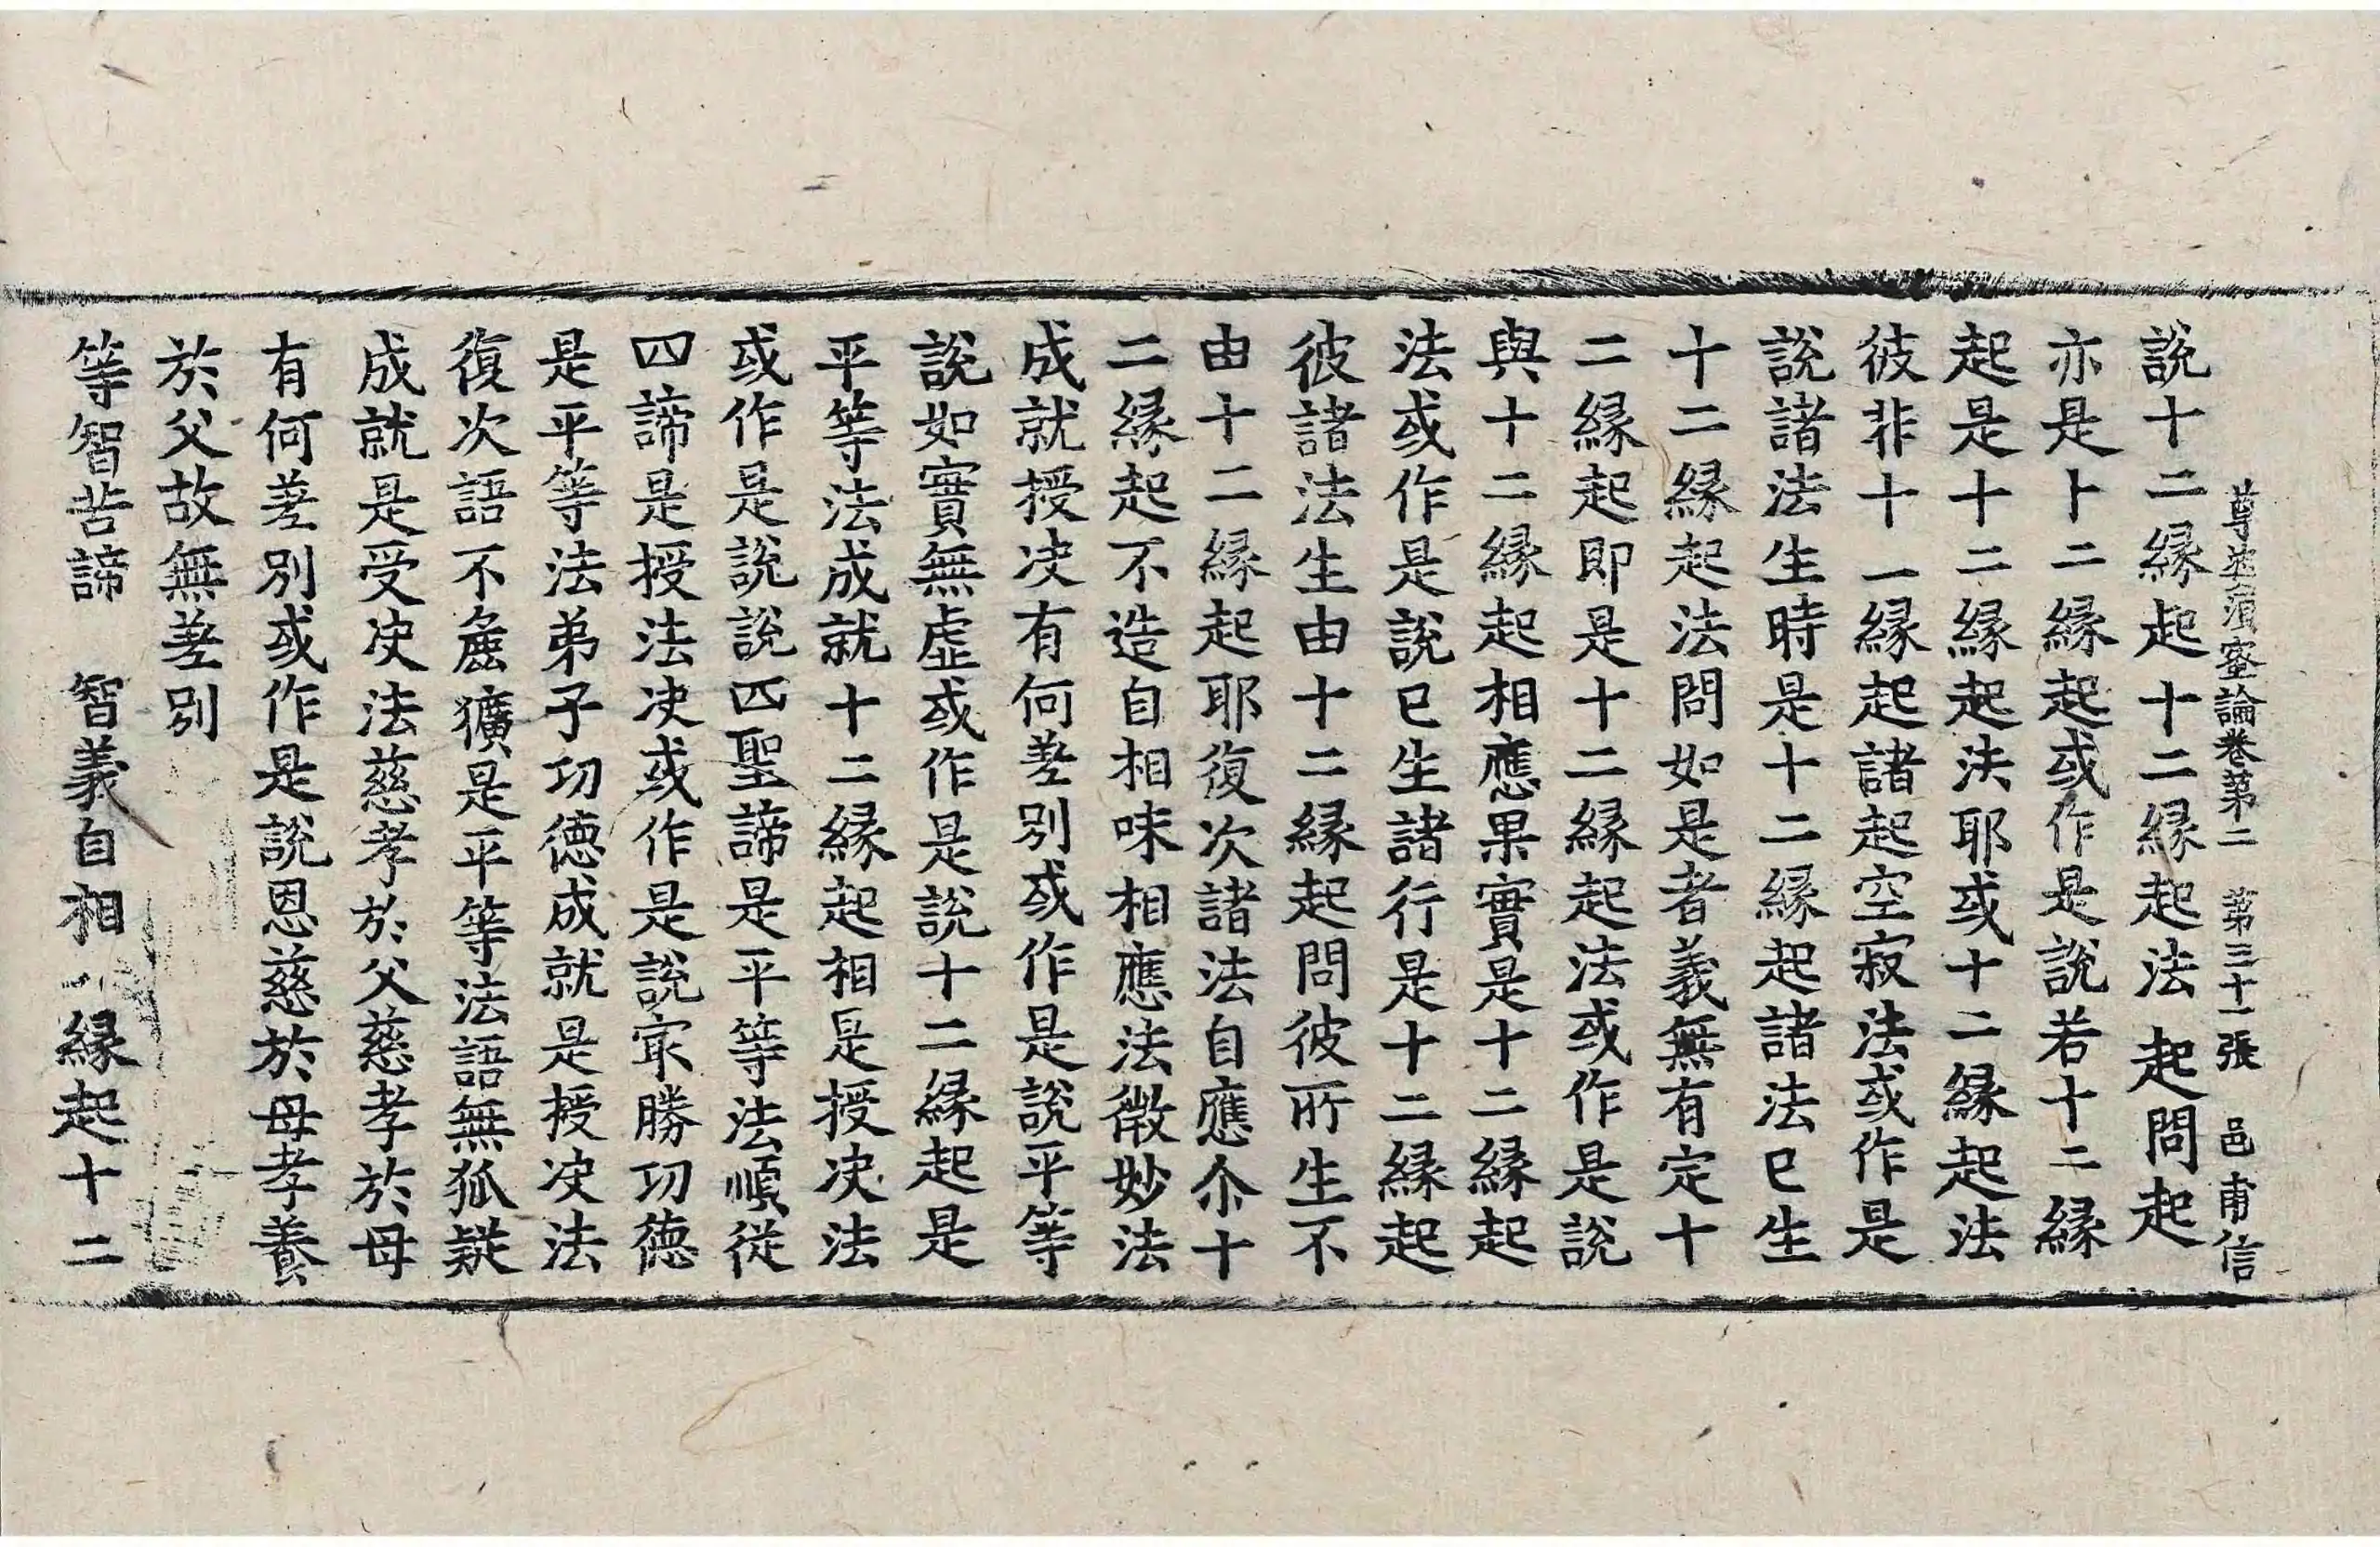 尊婆湏蜜論卷第二　第三十一張　邑甫信
說十二縁起十二縁起法起問起
亦是十二縁起或作是說若十二縁
起是十二縁起法耶或十二縁起法
彼非十一縁起諸起空寂法或作是
說諸法生時是十二縁起諸法已生
十二縁起法問如是者義無有定十
二縁起即是十二縁起法或作是說
與十二縁起相應果實是十二縁起
法或作是說已生諸行是十二縁起
彼諸法生由十二縁起問彼所生不
由十二縁起耶復次諸法自應尒十
二縁起不造自相味相應法微妙法
成就授决有何差別或作是說平等
說如實無虛或作是說十二縁起是
平等法成就十二縁起相是授决法
或作是說說四聖諦是平等法順從
四諦是授法决或作是說冣勝功德
是平等法弟子功德成就是授决法
復次語不麁獷是平等法語無狐疑
成就是受决法慈孝於父慈孝於母
有何差別或作是說恩慈於母孝養
於父故無差別
等智苦諦　智義自相　縁起十二